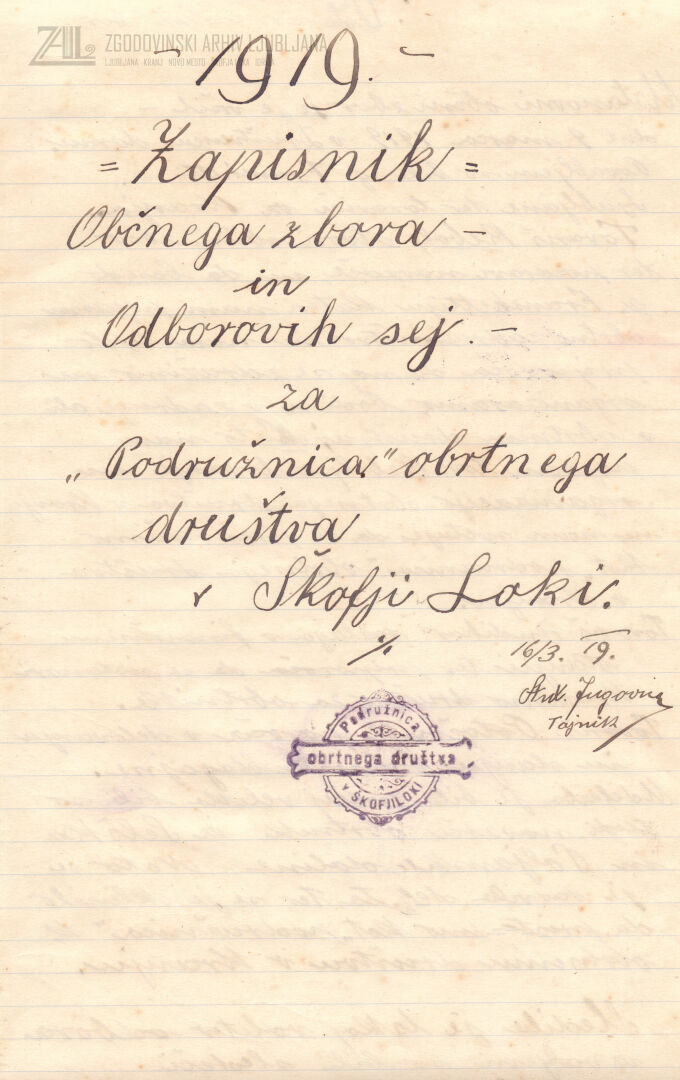 ZAL ZGODOVINSKI ARHIV LJUBLJANA
LJUBLJANA KRANJ NOVO MESTO ŠKOFJA LOKA IDRIJA
- 1919. -
= Zapisnik =
Občnega zbora -
in
Odborovih sej. -
za
„Podružnica" obrtnega
društva
v Škofji Loki.
16/3. 19.
Jugovic
Tajnik
Podružnica
obrtnega društva
v ŠKOFJILOKI